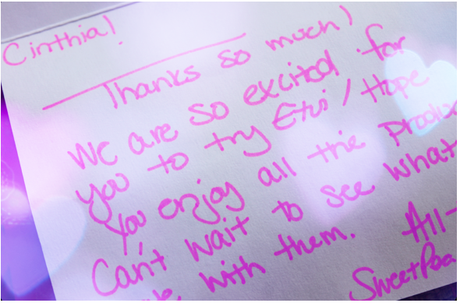 Cinthia!
Thanks so much!
We are so excited for
you to try Etvi / Hope
you enjoy all the produc
Can't wait to see what
with them.
All-
SweetPea